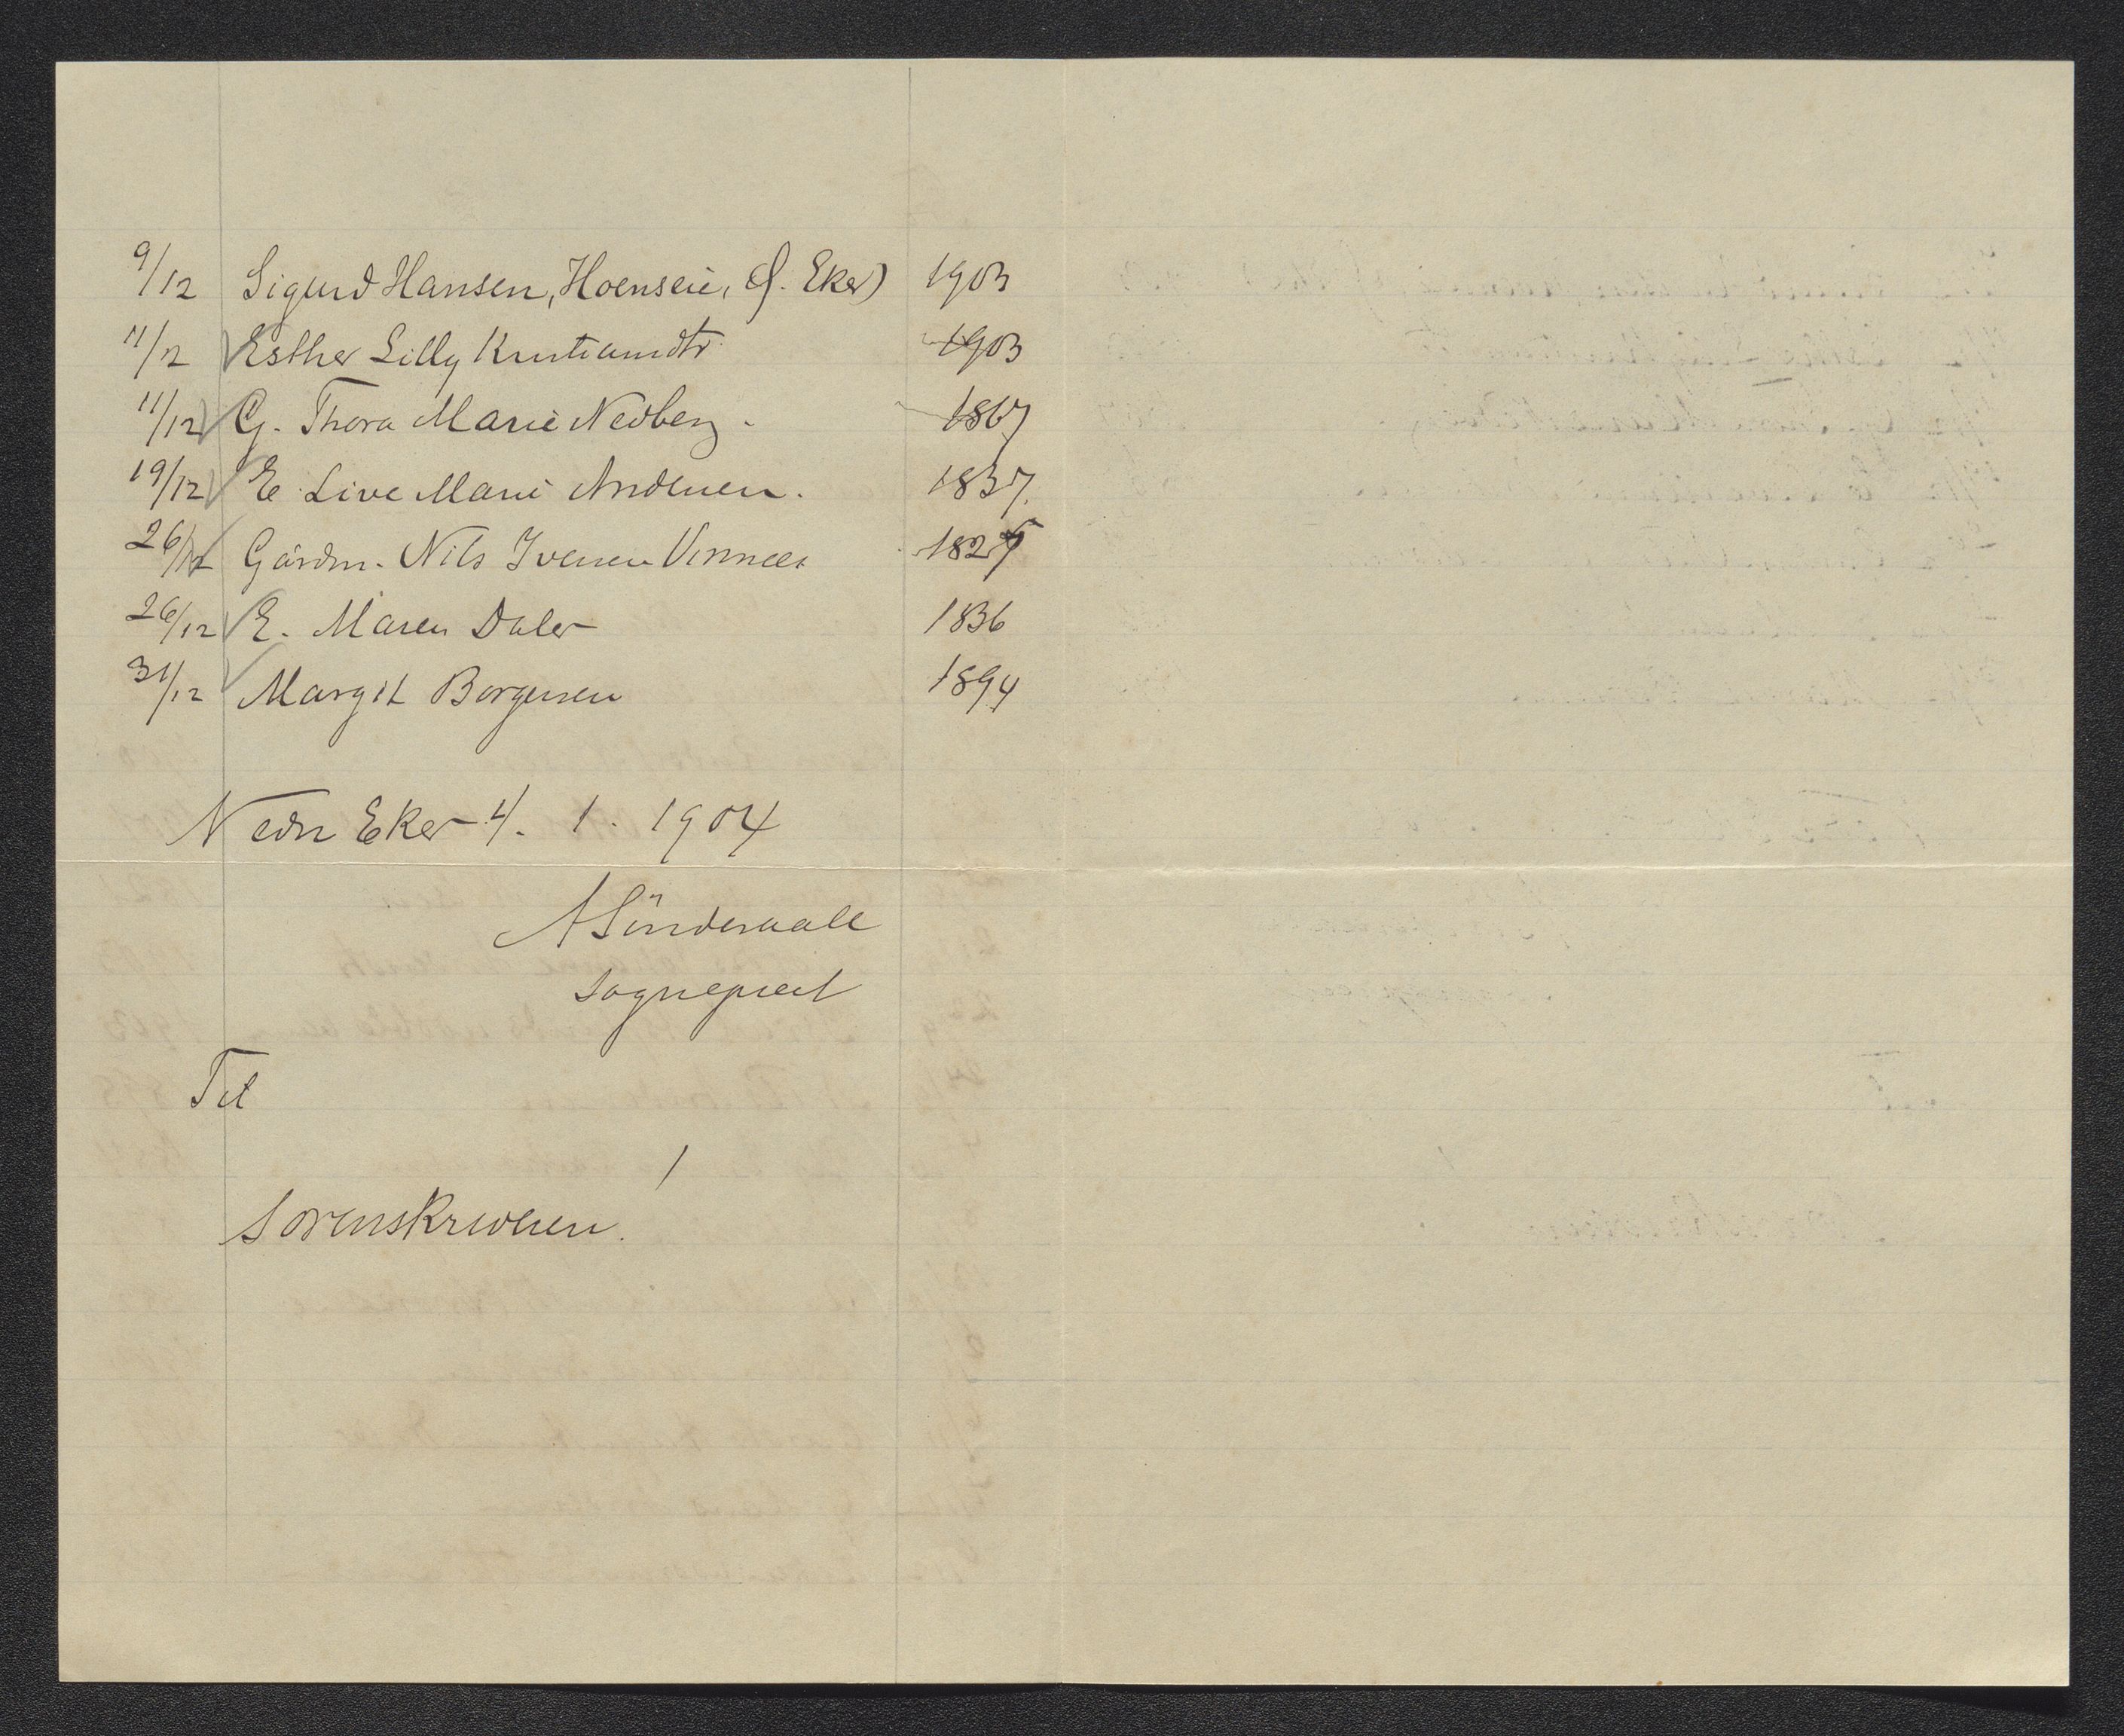 9/12 Sigurd Hansen, Hoenseie, Ø. Eker) 1903
11/12 Esther Lilly Kristiansdtr. 1903
11/12 G. Thora Marie Nedberg. 1867
19/12 E. Live Marie Andersen. 1837.
26/12 Gårdm. Nils Iversen Vinnes 1827
26/12 E. Maren Daler 1836
31/12 Margit Borgersen 1894
Nedre Eker 4. 1. 1904
A Sünderaall
sogneprest
Til
Sorenskriveren!